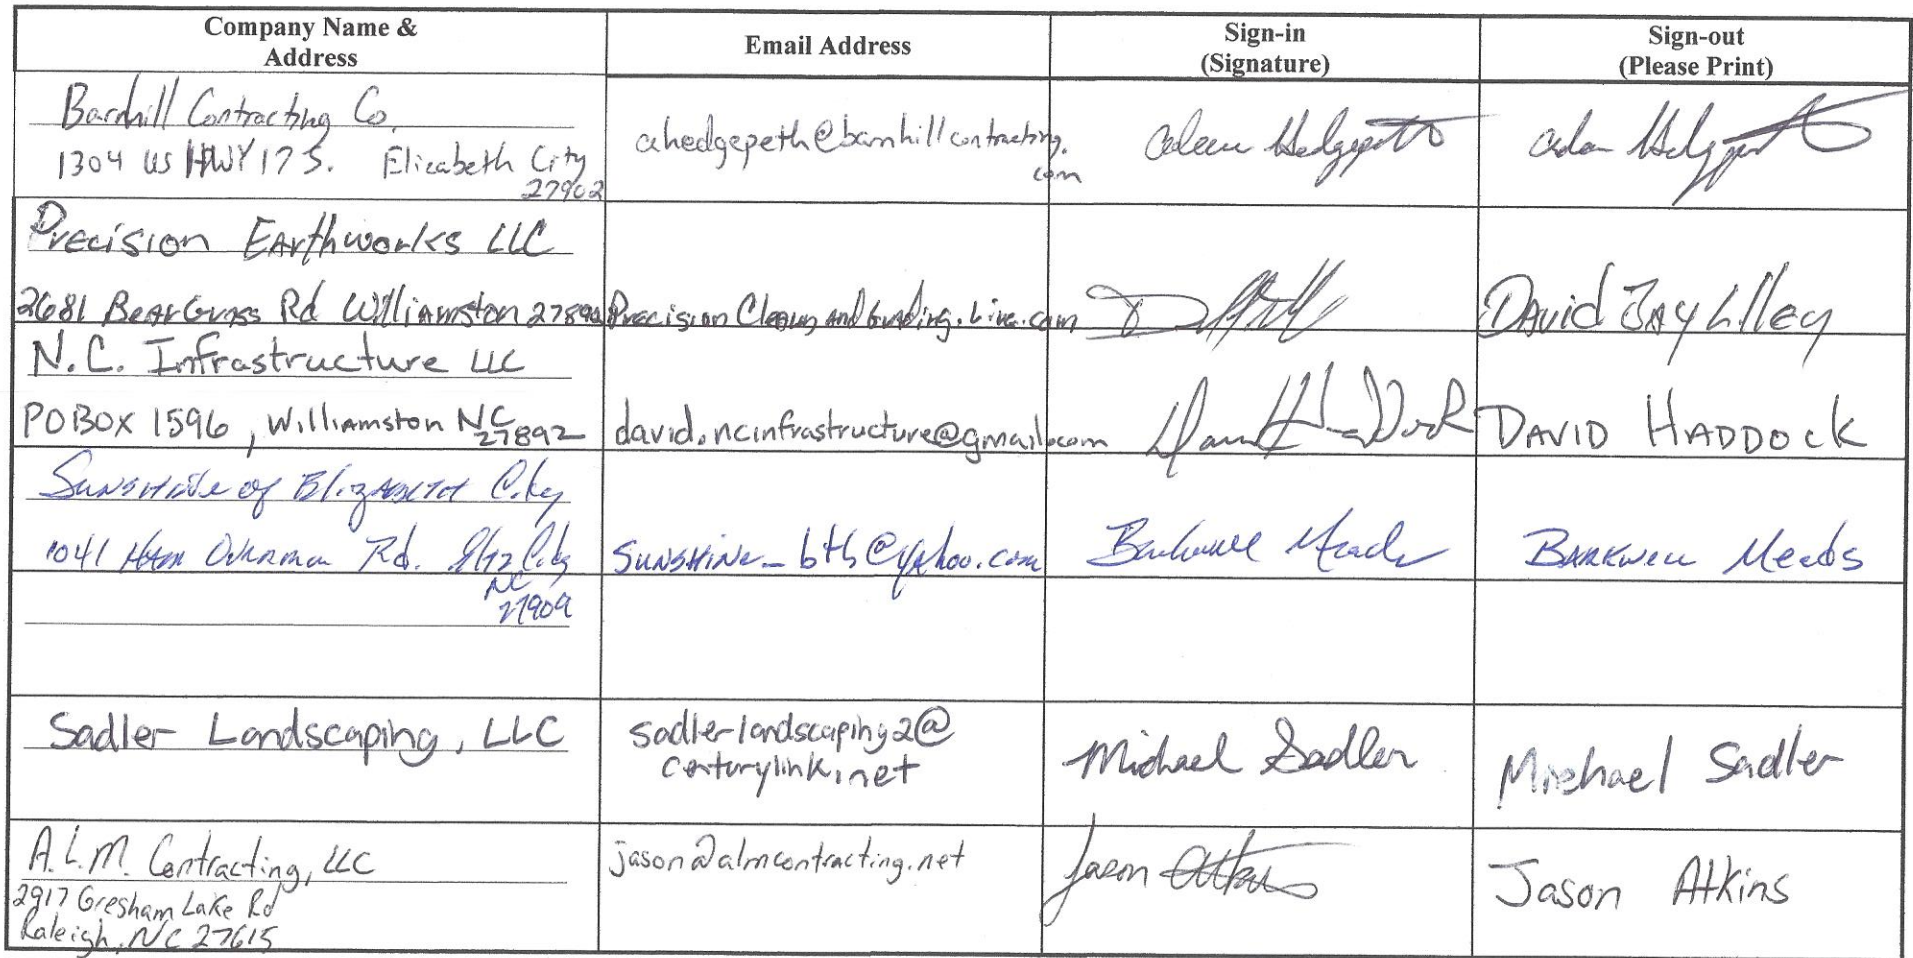 Company Name &
Address
Email Address
Sign-in
(Signature)
Sign-out
(Please Print)
Barnhill Contracting Co.
1304 US HWY 17 S. Elizabeth City
27902
ahedgepeth@barnhillcontracting.
com
Hedgepeth
Precision Earthworks LLC
2681 Bear Grass Rd Williamston 27892
Precision Clearing And Grading.Live.com
David Jay Lilley
N.C. Infrastructure LLC
PO BOX 1596, Williamston NC
27892
david.ncinfrastructure@gmail.com
David Haddock
DAVID HADDOCK
Sunshine of Elizabeth City
1041 Overman Rd. Eliz City
NC
27909
Sunshine_bth@yahoo.com
Barkwell Meads
Barkwell Meads
Sadler Landscaping, LLC
sadlerlandscaping2@
centurylink.net
Michael Sadler
Michael Sadler
A.L.M. Contracting, LLC
2917 Gresham Lake Rd
Raleigh, NC 27615
jason@almcontracting.net
Jason Atkins
Jason Atkins